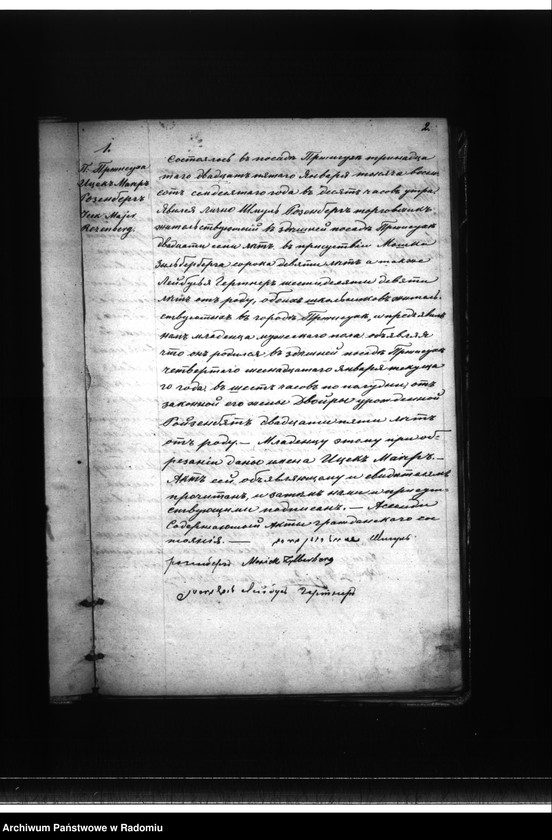 2.
1.
П. Пржтыкъ
Ицекъ Маеръ
Розенбергъ
Icek Majer
Rozenberg.
Состоялось въ посадѣ Пржтыкъ тринадца
таго двадцать пятаго Января тысяча восем
сотъ семдесятаго года въ десять часовъ утра
Явился лично Шмуль Розенбергъ торговчикъ
жительствующій въ здѣшней посадѣ Пржтыкъ
двадцати семи лѣтъ, въ присутствіи Мошка
Зильберберга сорока девяти лѣтъ а также
Лейбуся Гертнеръ шестидесяти девяти
лѣтъ отъ роду, обоихъ школьниковъ житель
ствующихъ въ городѣ Пржтыкъ, и предъявилъ
намъ младенца мужескаго пола объявляя
что онъ родился въ здѣшней посадѣ Пржтыкъ
четвертаго шестнадцатаго Января текуща
го года, въ шесть часовъ по полудни, отъ
законной его жены Двойры урожденной
двадцати пяти лѣтъ
отъ роду. — Младенцу этому при об-
рѣзаніи дано имена Ицекъ Маеръ. —
Актъ сей, объявляющему и свидѣтелямъ
прочитанъ, и затѣмъ нами и присут-
ствующими подписанъ. —
Содержающій Акты гражданского со
тоянія. — Шмуль
розенберг
Лейбуś Гертнеръ